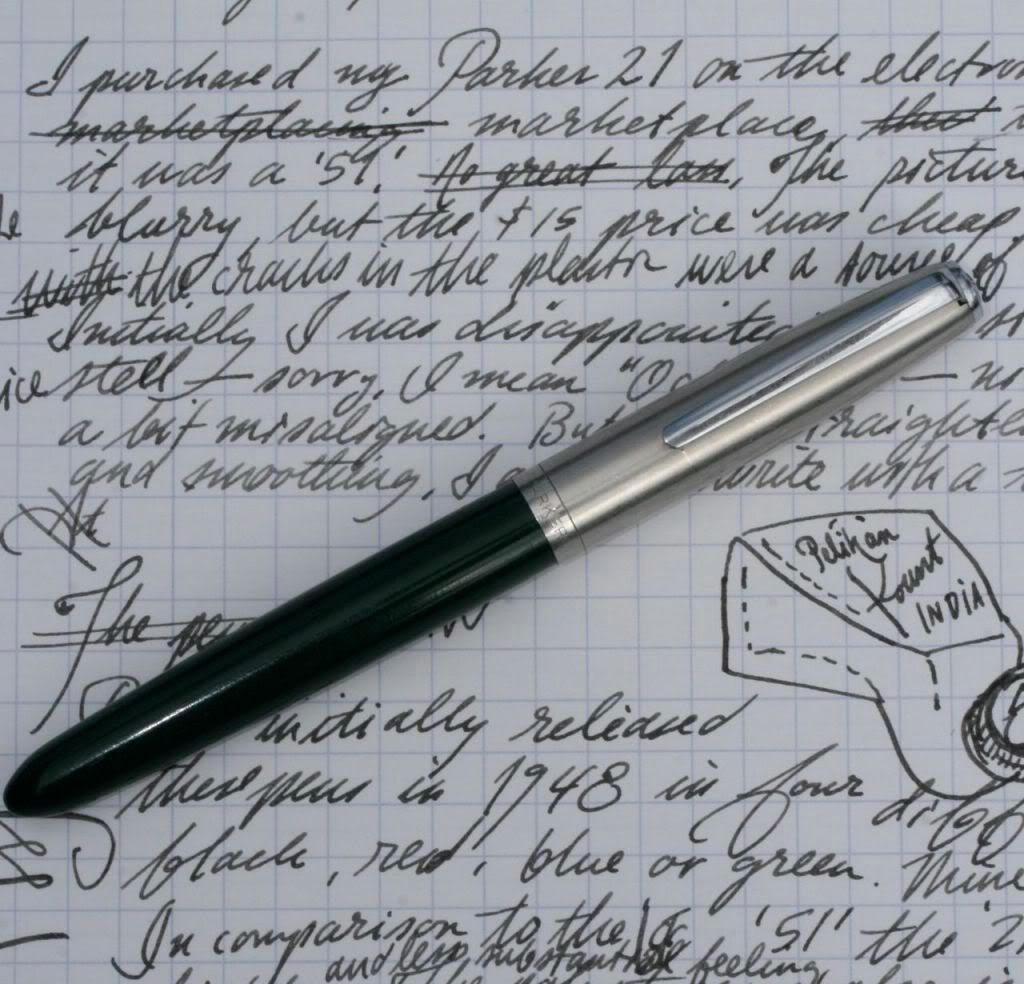 I purchased my Parker 21 on the electron
marketplacing marketplace, that
it was a '51'. No great loss. The pictur
blurry, but the $15 price was cheap
with the cracks in the plastic were a source of
Initially I was disappointed
ice steel - sorry, I mean "Oc — no
a bit misaligned. But straighte
and smoothing, I write with a
At
The pen
initially released
these pens in 1948 in four
black, red, blue or green. Mine
In comparison to the '51' the '2
and less substantial feeling
PARKER
Pelikan
Fount
INDIA